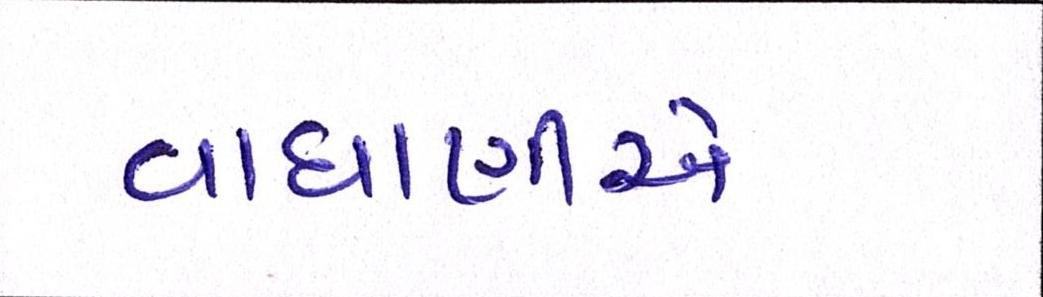 વાઘાણીએ